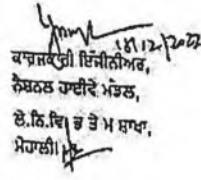 18/12/2022
ਕਾਰਜਕਾਰੀ ਇੰਜੀਨੀਅਰ,
ਨੈਸ਼ਨਲ ਹਾਈਵੇ ਮੰਡਲ,
ਲੋ.ਨਿ.ਵਿ ਭ ਤੇ ਮ ਸ਼ਾਖਾ,
ਮੋਹਾਲੀ।